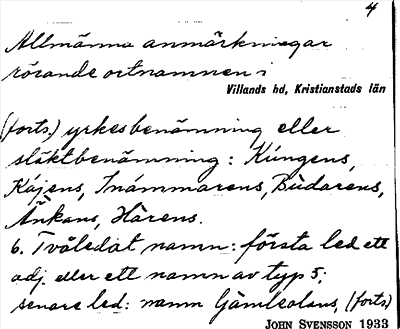 4
Allmänna anmärkningar
rörande ortnamnen i
Villands hd, Kristianstads län
(forts.) yrkesbenämning eller
släktbenämning: Kúngens,
Kájens, Inámmarens, Búdarens,
Ånkans, Hárens.
6. Tvåledat namn: första led ett
adj. eller ett namn av typ 5;
senare led: namn Gámleolans, (forts)
JOHN SVENSSON 1933